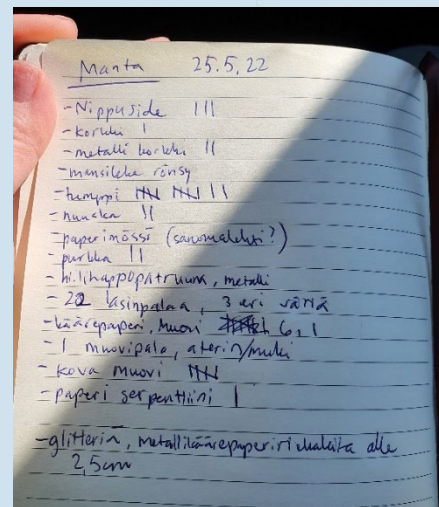 Manta 25.5.22
-Nippuside |||
-korkki |
-metalli korkki ||
-mansikka rönsy
-tumppi |||| |||| ||
-nuuska ||
-paperimössö (sanomalehti?)
-purkka ||
-hiilihappopatruuna, metalli
- 22 lasinpalaa, 3 eri väriä
-käärepaperi, muovi 6,1
- 1 muovipala, aterin/muki
- kova muovi ||||
-paperi serpenttiini |
-glitteriä, metallikäärepaperi alle
2,5cm